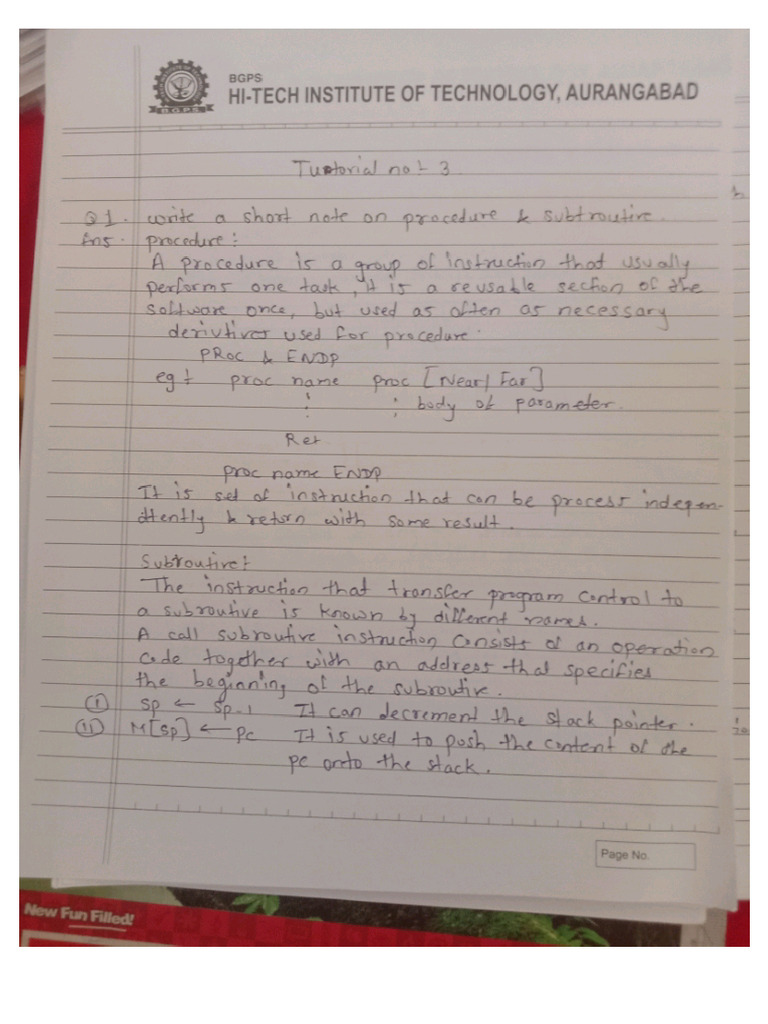 BGPS
HI-TECH INSTITUTE OF TECHNOLOGY, AURANGABAD
B.G.P.S.
Tutorial no :- 3
Q1. write a short note on procedure & subtroutive.
Ans. procedure :
A procedure is a group of instruction that usually
performs one task, it is a reusable section of the
software once, but used as often as necessary
derivtives used for procedure.
PROC & ENDP
eg : proc name proc [Near/ Far]
: ; body of parameter.
Ret
proc name ENDP
It is set of instruction that can be process indepen-
dtently & return with some result.
Subroutive :
The instruction that transfer program control to
a subroutive is known by different names.
A call subroutive instruction consists of an operation
code together with an address that specifies
the beginning of the subroutive.
(i) SP ← SP-1 It can decrement the stack pointer.
(ii) M[SP] ← PC It is used to push the content of the
pc onto the stack.
Page No.
New Fun Filled!